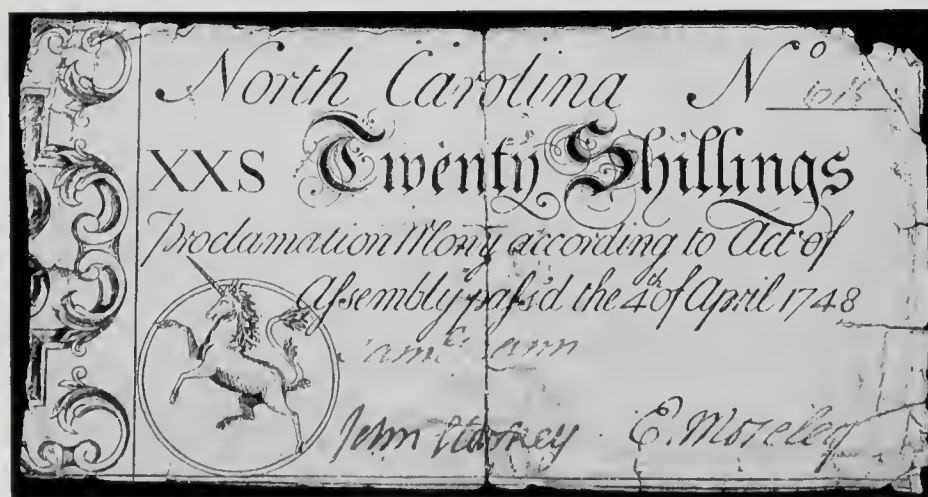 North Carolina No
XXS Twenty Shillings
Proclamation Mony according to Act of
Aſsembly paſs'd the 4th of April 1748
John
E. Moseley